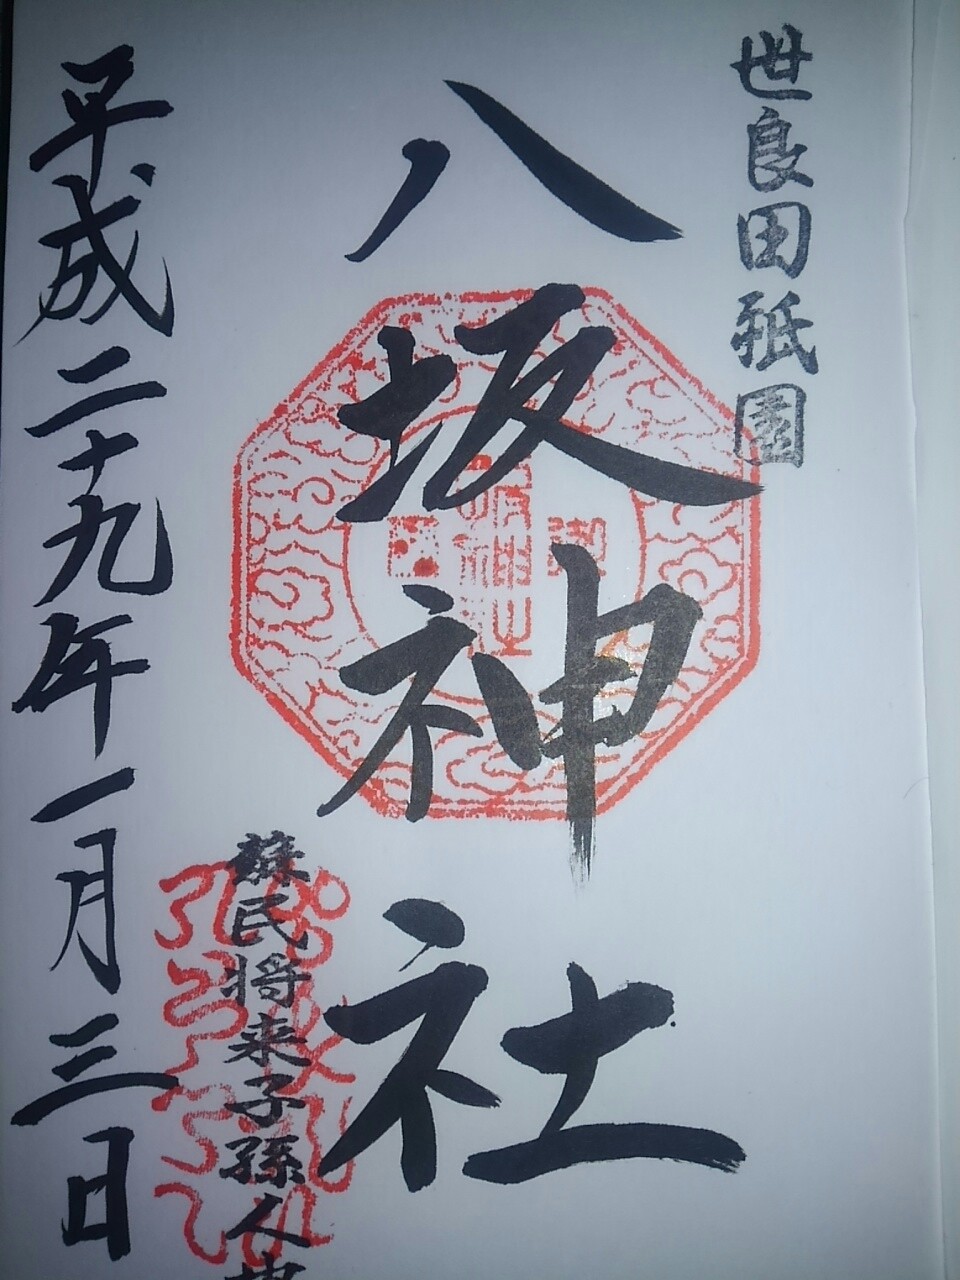 世良田祇園
八坂神社
蘇民将来子孫人也
平成二十九年一月三日